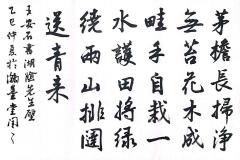 茅檐長掃淨
無苔花木成
畦手自栽一
水護田將綠
繞兩山排闥
送青来
王安石書湖陰先生壁
乙巳仲夏於瀚墨堂